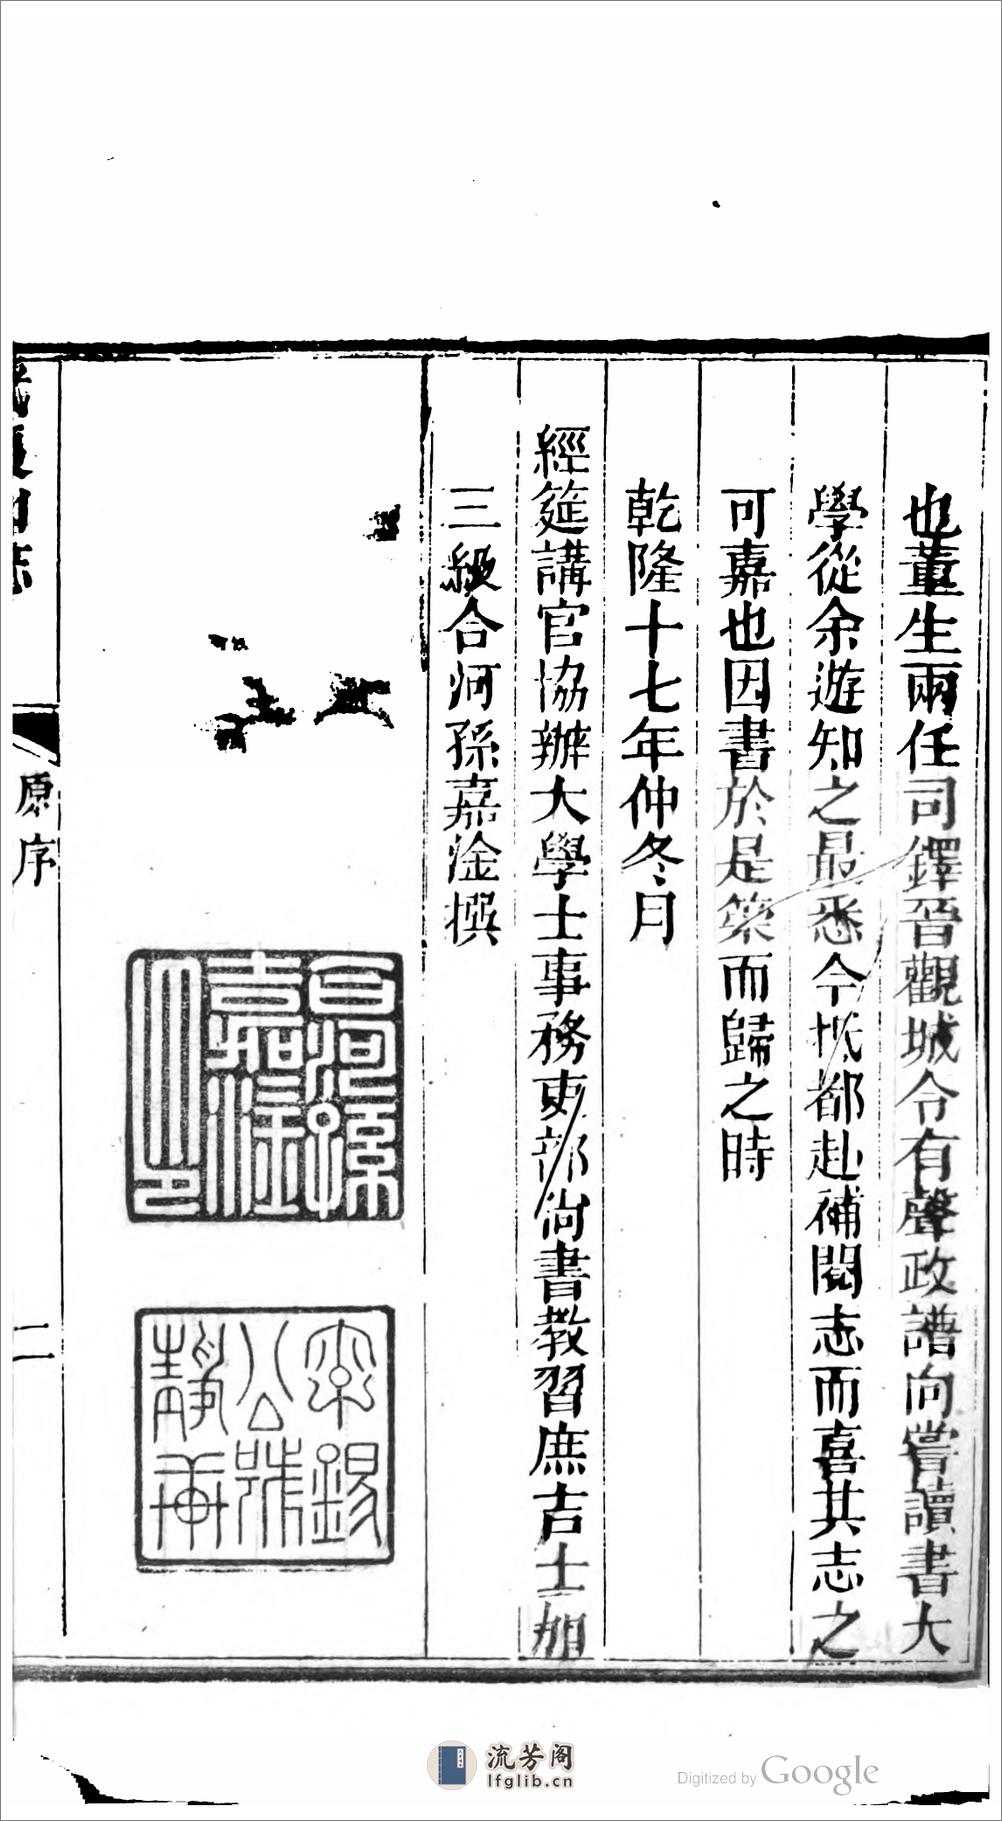 也董生兩任司鐸晉觀城令有聲政譜向嘗讀書大
學從余遊知之最悉今抵都赴補閱志而喜其志之
可嘉也因書於是策而歸之時
乾隆十七年仲冬月
經筵講官協辦大學士事務吏部尚書教習庶吉士加
三級合河孫嘉淦撰
合河孫嘉淦印
錫公號靜軒
原序
二
流芳阁
lfglib.cn
Digitized by Google